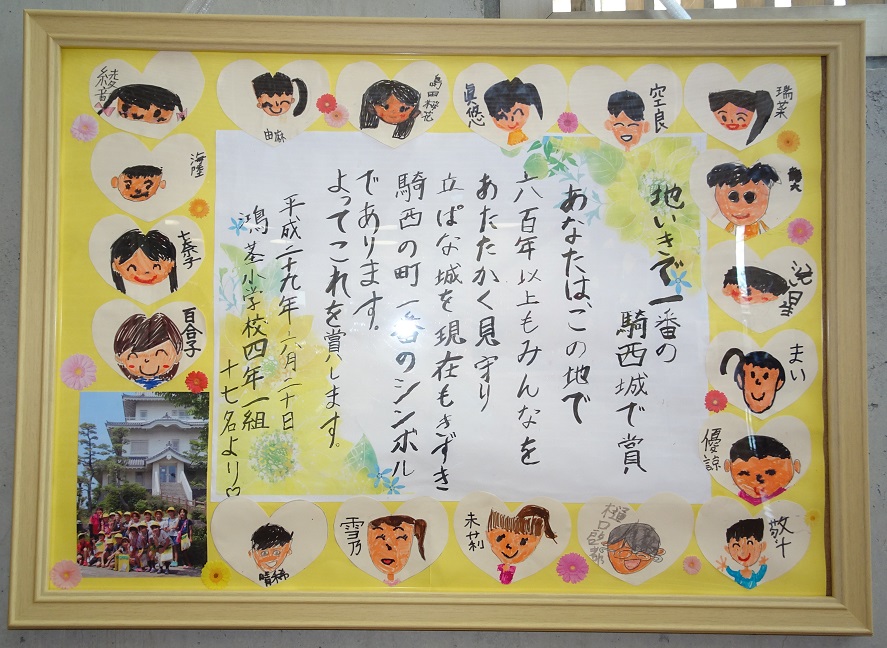 地いきで一番の
騎西城で賞
あなたは、この地で
六百年以上もみんなを
あたたかく見守り
立ぱな城を現在もきずき
騎西の町一番のシンボル
であります。
よってこれを賞します。
平成二十九年六月二十日
鴻茎小学校四年一組
十七名より♡
瑞菜
空良
眞悠心
島田桜花
由麻
綾音
海陸
百合子
まい
優諒
敬斗
樋口
未莉
雪乃
晴稀